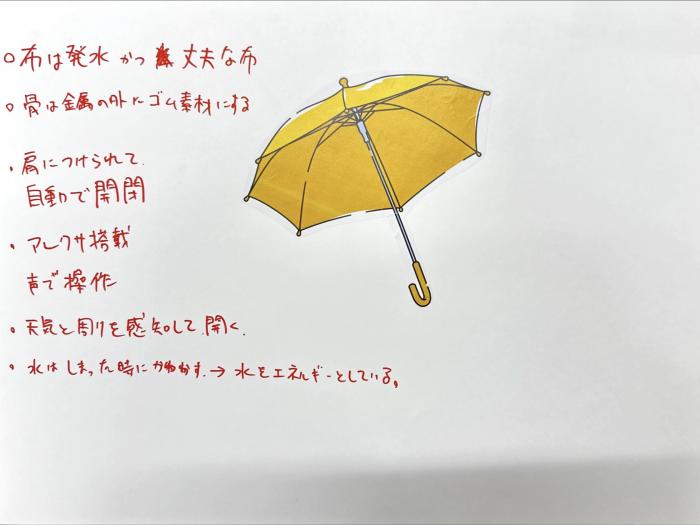 ○布は発水 かつ 丈夫な布
○骨は金属の外にゴム素材にする
・肩につけられて、
自動で開閉
・アレクサ搭載
声で操作
・天気と周りを感知して、開く。
・水はしまった時にかわかす。→水をエネルギーとしている。